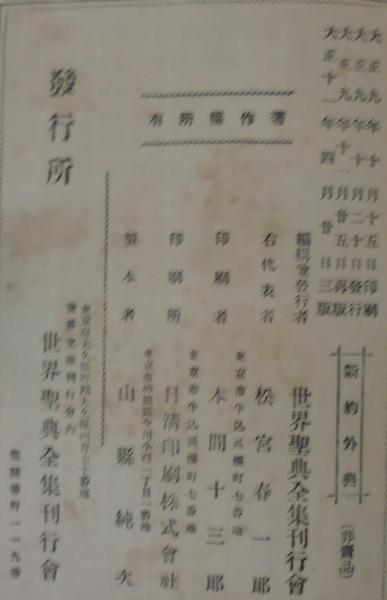 大正九年十月十五日印刷
大正九年十月二十日發行
大正九年十一月廿五日再版
大正十一年四月廿日三版
新約外典
(非賣品)
著作權所有
編輯兼發行者 世界聖典全集刊行會
右代表者 松宮春一郎
東京市牛込區榎町七番地
印刷者 本間十三郎
東京市牛込區榎町七番地
印刷所 日清印刷株式會社
製本者 山縣純次
發行所
世界聖典全集刊行會內
世界聖典全集刊行會